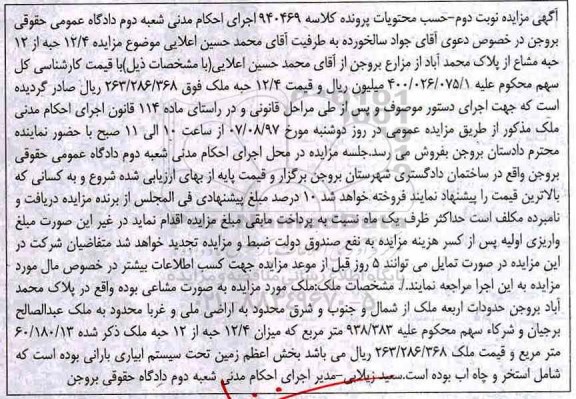 آگهی مزایده نوبت دوم-حسب محتویات پرونده کلاسه ۹۴۰۴۶۹ اجرای احکام مدنی شعبه دوم دادگاه عمومی حقوقی
بروجن در خصوص دعوی آقای جواد سالخورده به طرفیت آقای محمد حسین اعلایی موضوع مزایده ۱۲/۴ حبه از ۱۲
حبه مشاع از پلاک محمد آباد از مزارع بروجن از آقای محمد حسین اعلایی(با مشخصات ذیل)با قیمت کارشناسی کل
سهم محکوم علیه ۴۰۰/۰۲۶/۰۷۵/۱ میلیون ریال و قیمت ۱۲/۴ حبه ملک فوق ۲۶۳/۲۸۶/۳۶۸ ریال صادر گردیده
است که جهت اجرای دستور موصوف و پس از طی مراحل قانونی و در راستای ماده ۱۱۴ قانون اجرای احکام مدنی
ملک مذکور از طریق مزایده عمومی در روز دوشنبه مورخ ۰۷/۰۸/۹۷ از ساعت ۱۰ الی ۱۱ صبح با حضور نماینده
محترم دادستان بروجن بفروش می رسد.جلسه مزایده در محل اجرای احکام مدنی شعبه دوم دادگاه عمومی حقوقی
بروجن واقع در ساختمان دادگستری شهرستان بروجن برگزار و قیمت پایه از بهای ارزیابی شده شروع و به کسانی که
بالاترین قیمت را پیشنهاد نمایند فروخته خواهد شد ۱۰ درصد مبلغ پیشنهادی فی المجلس از برنده مزایده دریافت و
نامبرده مکلف است حداکثر ظرف یک ماه نسبت به پرداخت مابقی مبلغ مزایده اقدام نماید در غیر این صورت مبلغ
واریزی اولیه پس از کسر هزینه مزایده به نفع صندوق دولت ضبط و مزایده تجدید خواهد شد متقاضیان شرکت در
این مزایده در صورت تمایل می توانند ۵ روز قبل از موعد مزایده جهت کسب اطلاعات بیشتر در خصوص مال مورد
مزایده به این اجرا مراجعه نمایند./. مشخصات ملک:ملک مورد مزایده به صورت مشاعی بوده واقع در پلاک محمد
آباد بروجن حدودات اربعه ملک از شمال و جنوب و شرق محدود به اراضی ملی و غربا محدود به ملک عبدالصالح
برجیان و شرکاء سهم محکوم علیه ۹۳۸/۳۸۳ متر مربع که میزان ۱۲/۴ حبه از ۱۲ حبه ملک ذکر شده ۶۰/۱۸۰/۱۳
متر مربع و قیمت ملک ۲۶۳/۲۸۶/۳۶۸ ریال می باشد بخش اعظم زمین تحت سیستم ابیاری بارانی بوده است که
شامل استخر و چاه اب بوده است.سعید زیلابی-مدیر اجرای احکام مدنی شعبه دوم دادگاه حقوقی بروجن